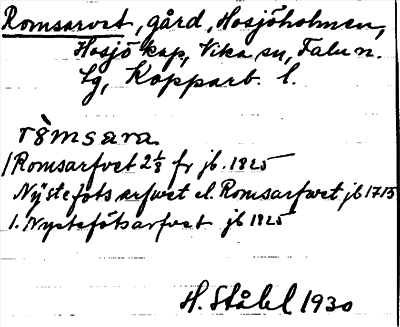 Romsarvet, gård, Hosjöholmen,
Hosjö kap, Vika sn, Falu n.
lg, Kopparb. l.
ròmsara
/Romsarfvet 2 1/8 fr jb. 1825
Nÿstefots arfwet el. Romsarfwet jb 1715
1. Nystefötsarfvet jb 1825
H. Ståhl 1930